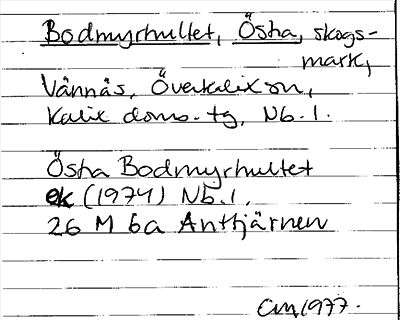 Bodmyrhultet, Östra, skogs-
mark,
Vännäs, Överkalix sn,
Kalix doms. tg, Nb. l.
Östra Bodmyrhultet
ek (1974) Nb. l.
26 M 6a Anttjärnen
1977.